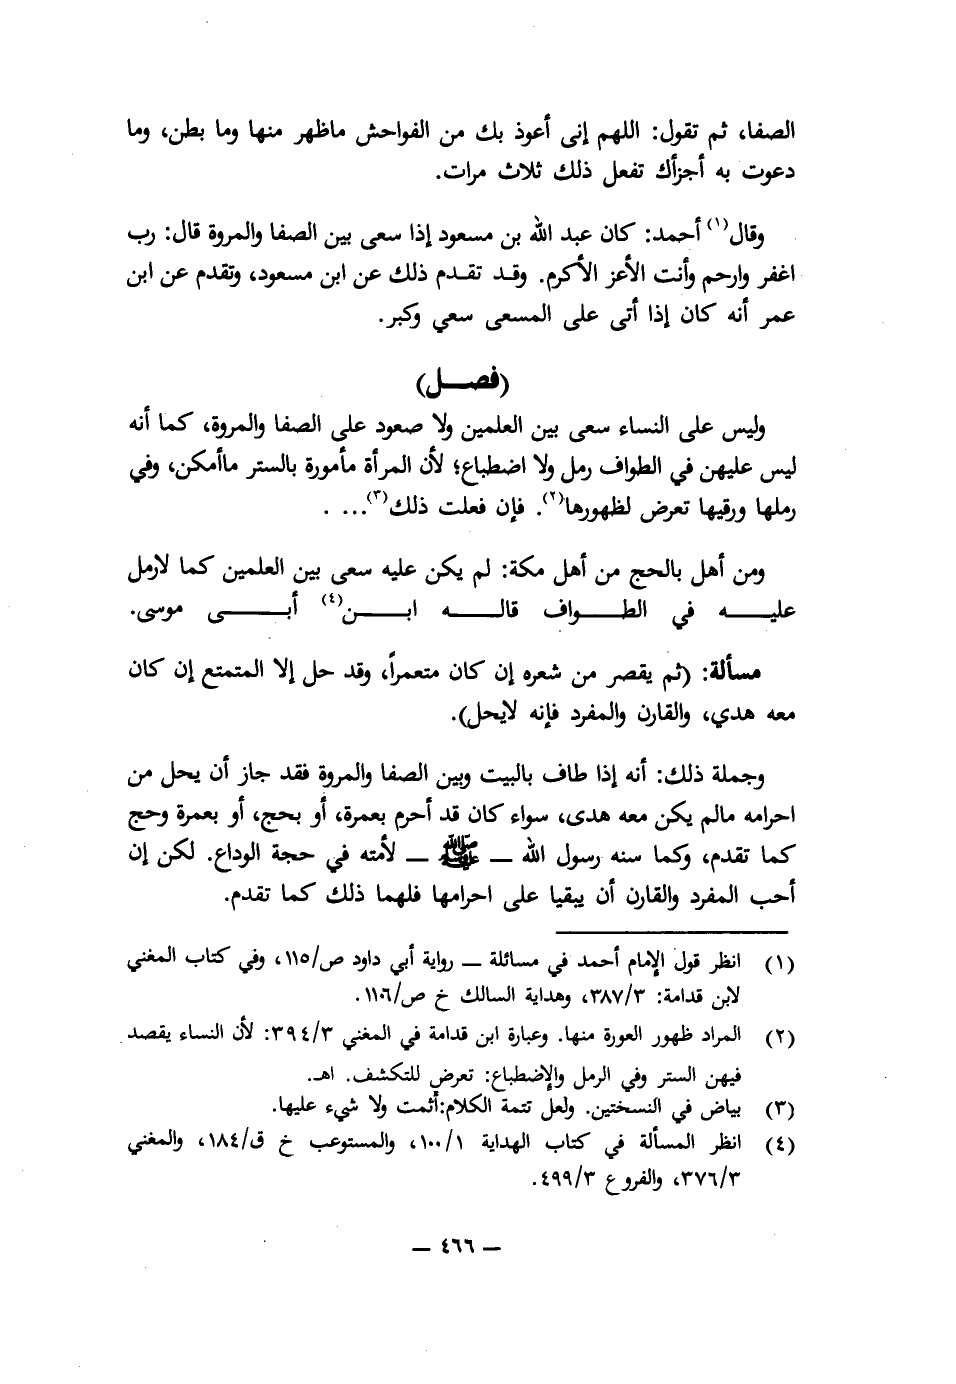 الصفا، ثم تقول: اللهم إنى أعوذ بك من الفواحش ماظهر منها وما بطن، وما
دعوت به أجزأك تفعل ذلك ثلاث مرات.
وقال(١) أحمد: كان عبد الله بن مسعود إذا سعى بين الصفا والمروة قال: رب
اغفر وارحم وأنت الأعز الأكرم. وقد تقدم ذلك عن ابن مسعود، وتقدم عن ابن
عمر أنه كان إذا أتى على المسعى سعي وكبر.
(فصل)
وليس على النساء سعى بين العلمين ولا صعود على الصفا والمروة، كما أنه
ليس عليهن في الطواف رمل ولا اضطباع؛ لأن المرأة مأمورة بالستر ماأمكن، وفي
رملها ورقيها تعرض لظهورها(٢). فإن فعلت ذلك(٣)... .
ومن أهل بالحج من أهل مكة: لم يكن عليه سعى بين العلمين كما لارمل
عليه في الطواف قاله ابن(٤) أبى موسى.
مسألة: (ثم يقصر من شعره إن كان متعمراً، وقد حل إلا المتمتع إن كان
معه هدي، والقارن والمفرد فإنه لايحل).
وجملة ذلك: أنه إذا طاف بالبيت وبين الصفا والمروة فقد جاز أن يحل من
احرامه مالم يكن معه هدى، سواء كان قد أحرم بعمرة، أو بحج، أو بعمرة وحج
كما تقدم، وكما سنه رسول الله — ﷺ — لأمته في حجة الوداع. لكن إن
أحب المفرد والقارن أن يبقيا على احرامها فلهما ذلك كما تقدم.
(١) انظر قول الإمام أحمد في مسائلة — رواية أبي داود ص/١١٥، وفي كتاب المغني
لابن قدامة: ٣٨٧/٣، وهداية السالك خ ص/١١٠٦.
(٢) المراد ظهور العورة منها. وعبارة ابن قدامة في المغني ٣٩٤/٣: لأن النساء يقصد
فيهن الستر وفي الرمل والإضطباع: تعرض للتكشف. اهـ.
(٣) بياض في النسختين. ولعل تتمة الكلام:أثمت ولا شيء عليها.
(٤) انظر المسألة في كتاب الهداية ١٠٠/١، والمستوعب خ ق/١٨٤، والمغني
٣٧٦/٣، والفروع ٤٩٩/٣.
— ٤٦٦ —